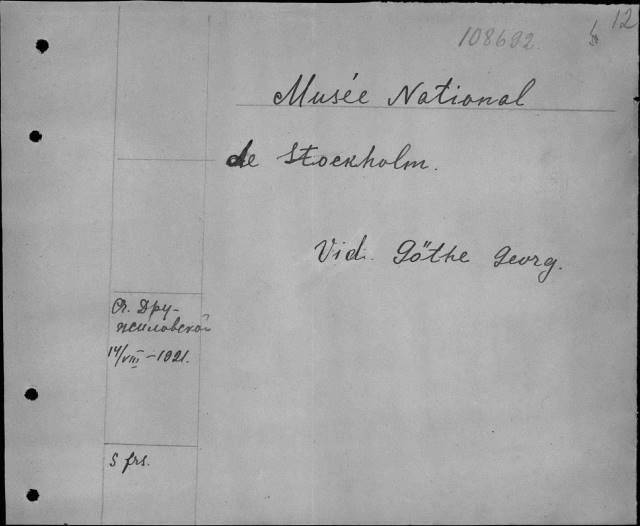 108692. 12
Musée National
de Stockholm.
Vid. Göthe Georg.
От Дру-
жиловской
14/VIII-1921.
5 frs.